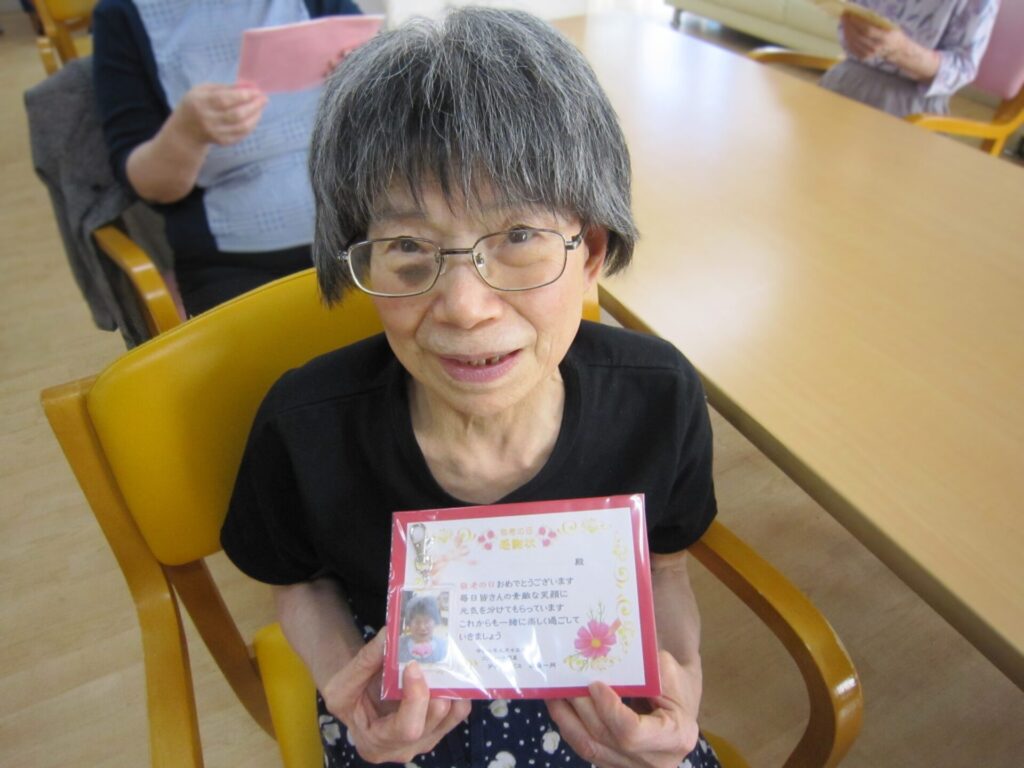 敬老の日
感謝状
殿
敬老の日おめでとうございます
毎日皆さんの素敵な笑顔に
元気を分けてもらっています
これからも一緒に楽しく過ごして
いきましょう